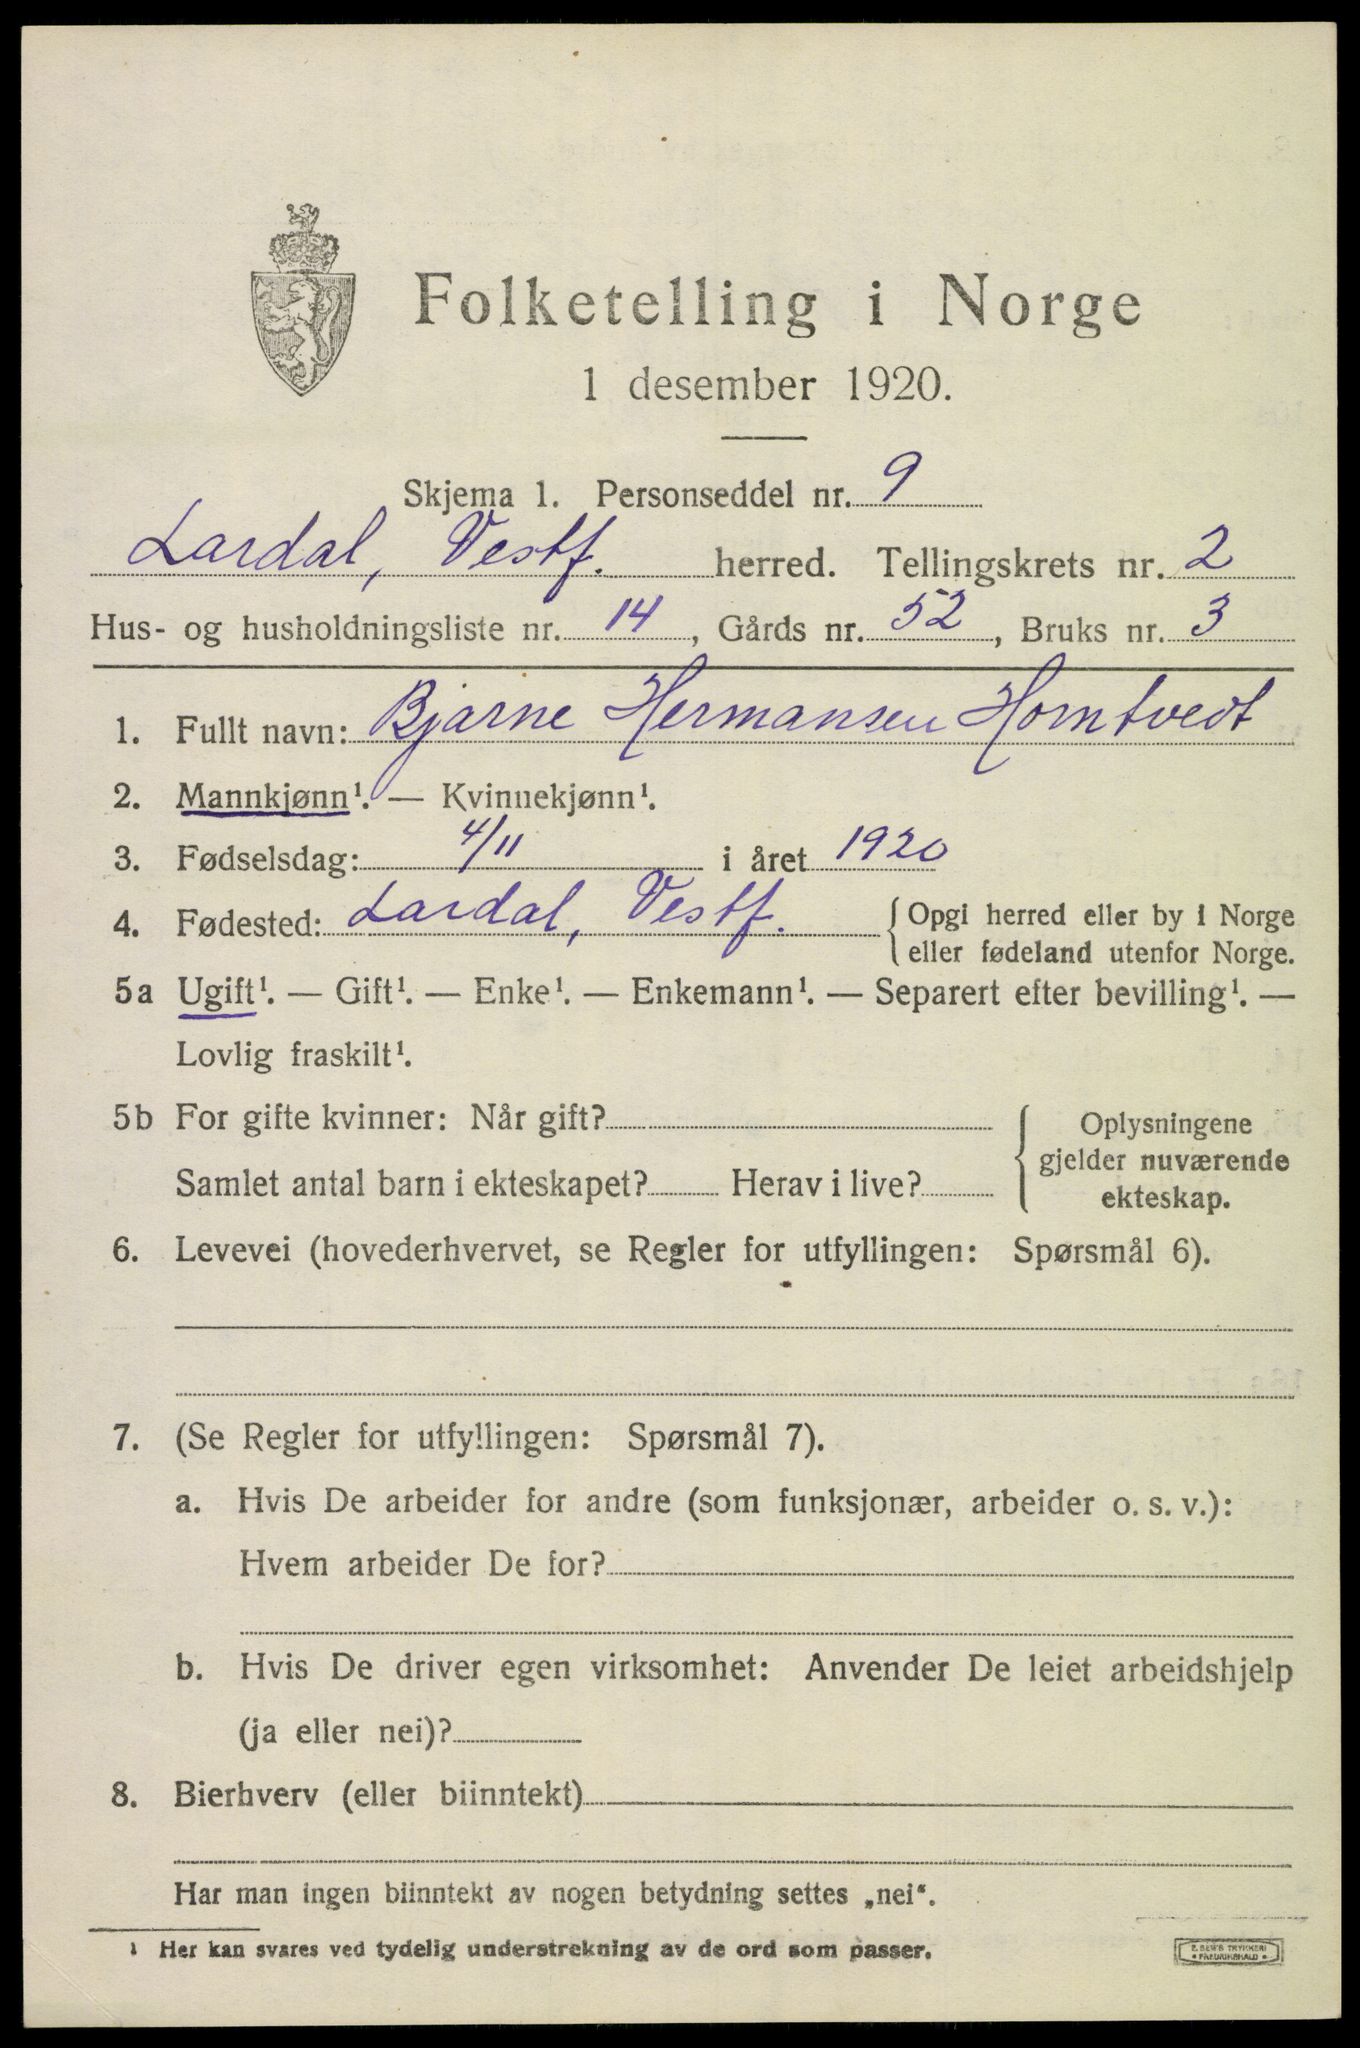 Folketelling i Norge
1 desember 1920.
Skjema 1. Personseddel nr. 9
Lardal, Vestf. herred. Tellingskrets nr. 2
Hus- og husholdningsliste nr. 14, Gårds nr. 52, Bruks nr. 3
1. Fullt navn: Bjarne Hermansen Homtvedt
2. Mannkjønn¹. — Kvinnekjønn¹.
3. Fødselsdag: 4/11 i året 1920
4. Fødested: Lardal, Vestf. { Opgi herred eller by i Norge
eller fødeland utenfor Norge.
5a Ugift¹. — Gift¹. — Enke¹. — Enkemann¹. — Separert efter bevilling¹. —
Lovlig fraskilt¹.
5b For gifte kvinner: Når gift?
Samlet antal barn i ekteskapet? Herav i live?
Oplysningene
gjelder nuværende
ekteskap.
6. Levevei (hovederhvervet, se Regler for utfyllingen: Spørsmål 6).
7. (Se Regler for utfyllingen: Spørsmål 7).
a. Hvis De arbeider for andre (som funksjonær, arbeider o. s. v.):
Hvem arbeider De for?
b. Hvis De driver egen virksomhet: Anvender De leiet arbeidshjelp
(ja eller nei)?
8. Bierhverv (eller biinntekt)
Har man ingen biinntekt av nogen betydning settes „nei".
¹ Her kan svares ved tydelig understrekning av de ord som passer.
E. SEM'S TRYKKERI
FREDRIKSHALD